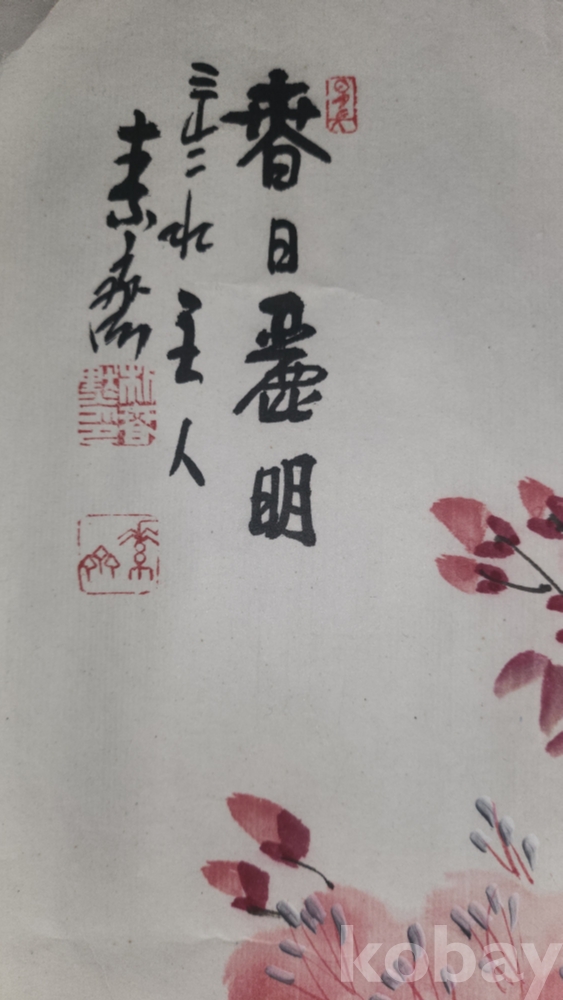 春日麗明
三山二水主人
素齋
素齋
kobay